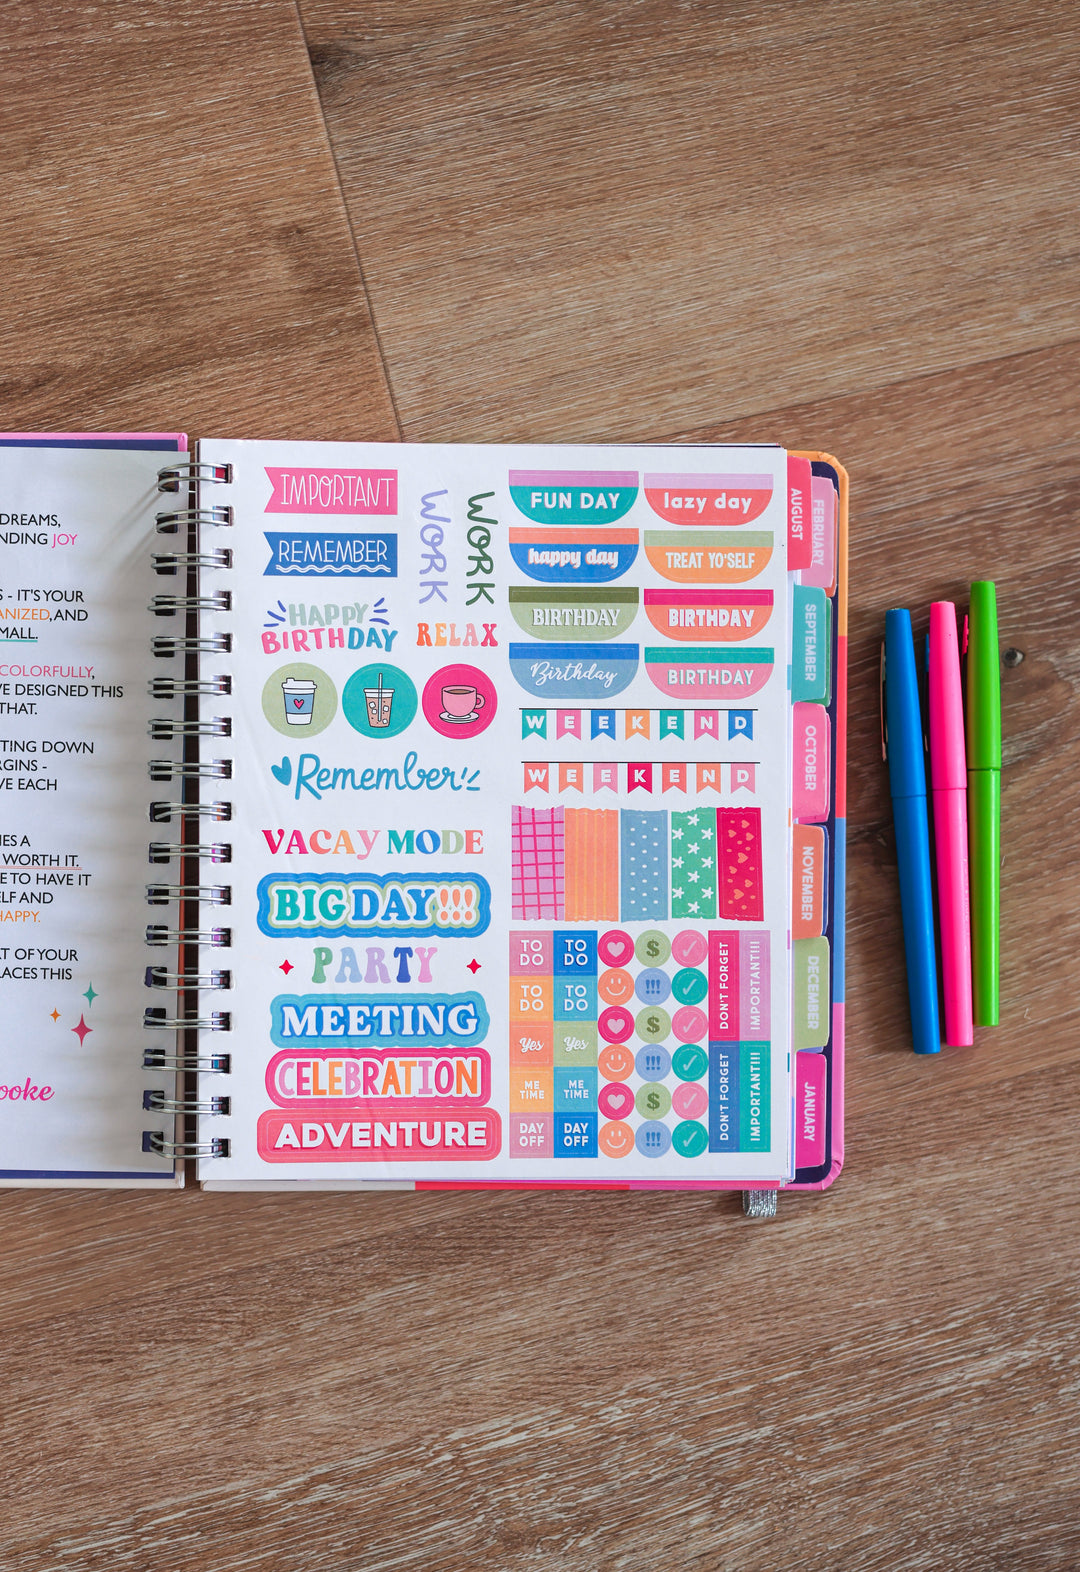 DREAMS,
NDING JOY
S - IT'S YOUR
ANIZED, AND
MALL.
COLORFULLY,
VE DESIGNED THIS
THAT.
TING DOWN
RGINS -
VE EACH
IES A
WORTH IT.
E TO HAVE IT
ELF AND
HAPPY.
AT OF YOUR
LACES THIS
ooke
IMPORTANT
REMEMBER
WORK
WORK
HAPPY
BIRTHDAY
RELAX
Remember!
VACAY MODE
BIG DAY!!!
PARTY
MEETING
CELEBRATION
ADVENTURE
FUN DAY
lazy day
happy day
TREAT YO'SELF
BIRTHDAY
BIRTHDAY
Birthday
BIRTHDAY
WEEKEND
WEEKEND
TO
DO
TO
DO
TO
DO
TO
DO
Yes
Yes
ME
TIME
ME
TIME
DAY
OFF
DAY
OFF
$
!!!
$
!!!
$
!!!
DON'T FORGET
IMPORTANT!!!
DON'T FORGET
IMPORTANT!!!
AUGUST
FEBRUARY
SEPTEMBER
OCTOBER
NOVEMBER
DECEMBER
JANUARY